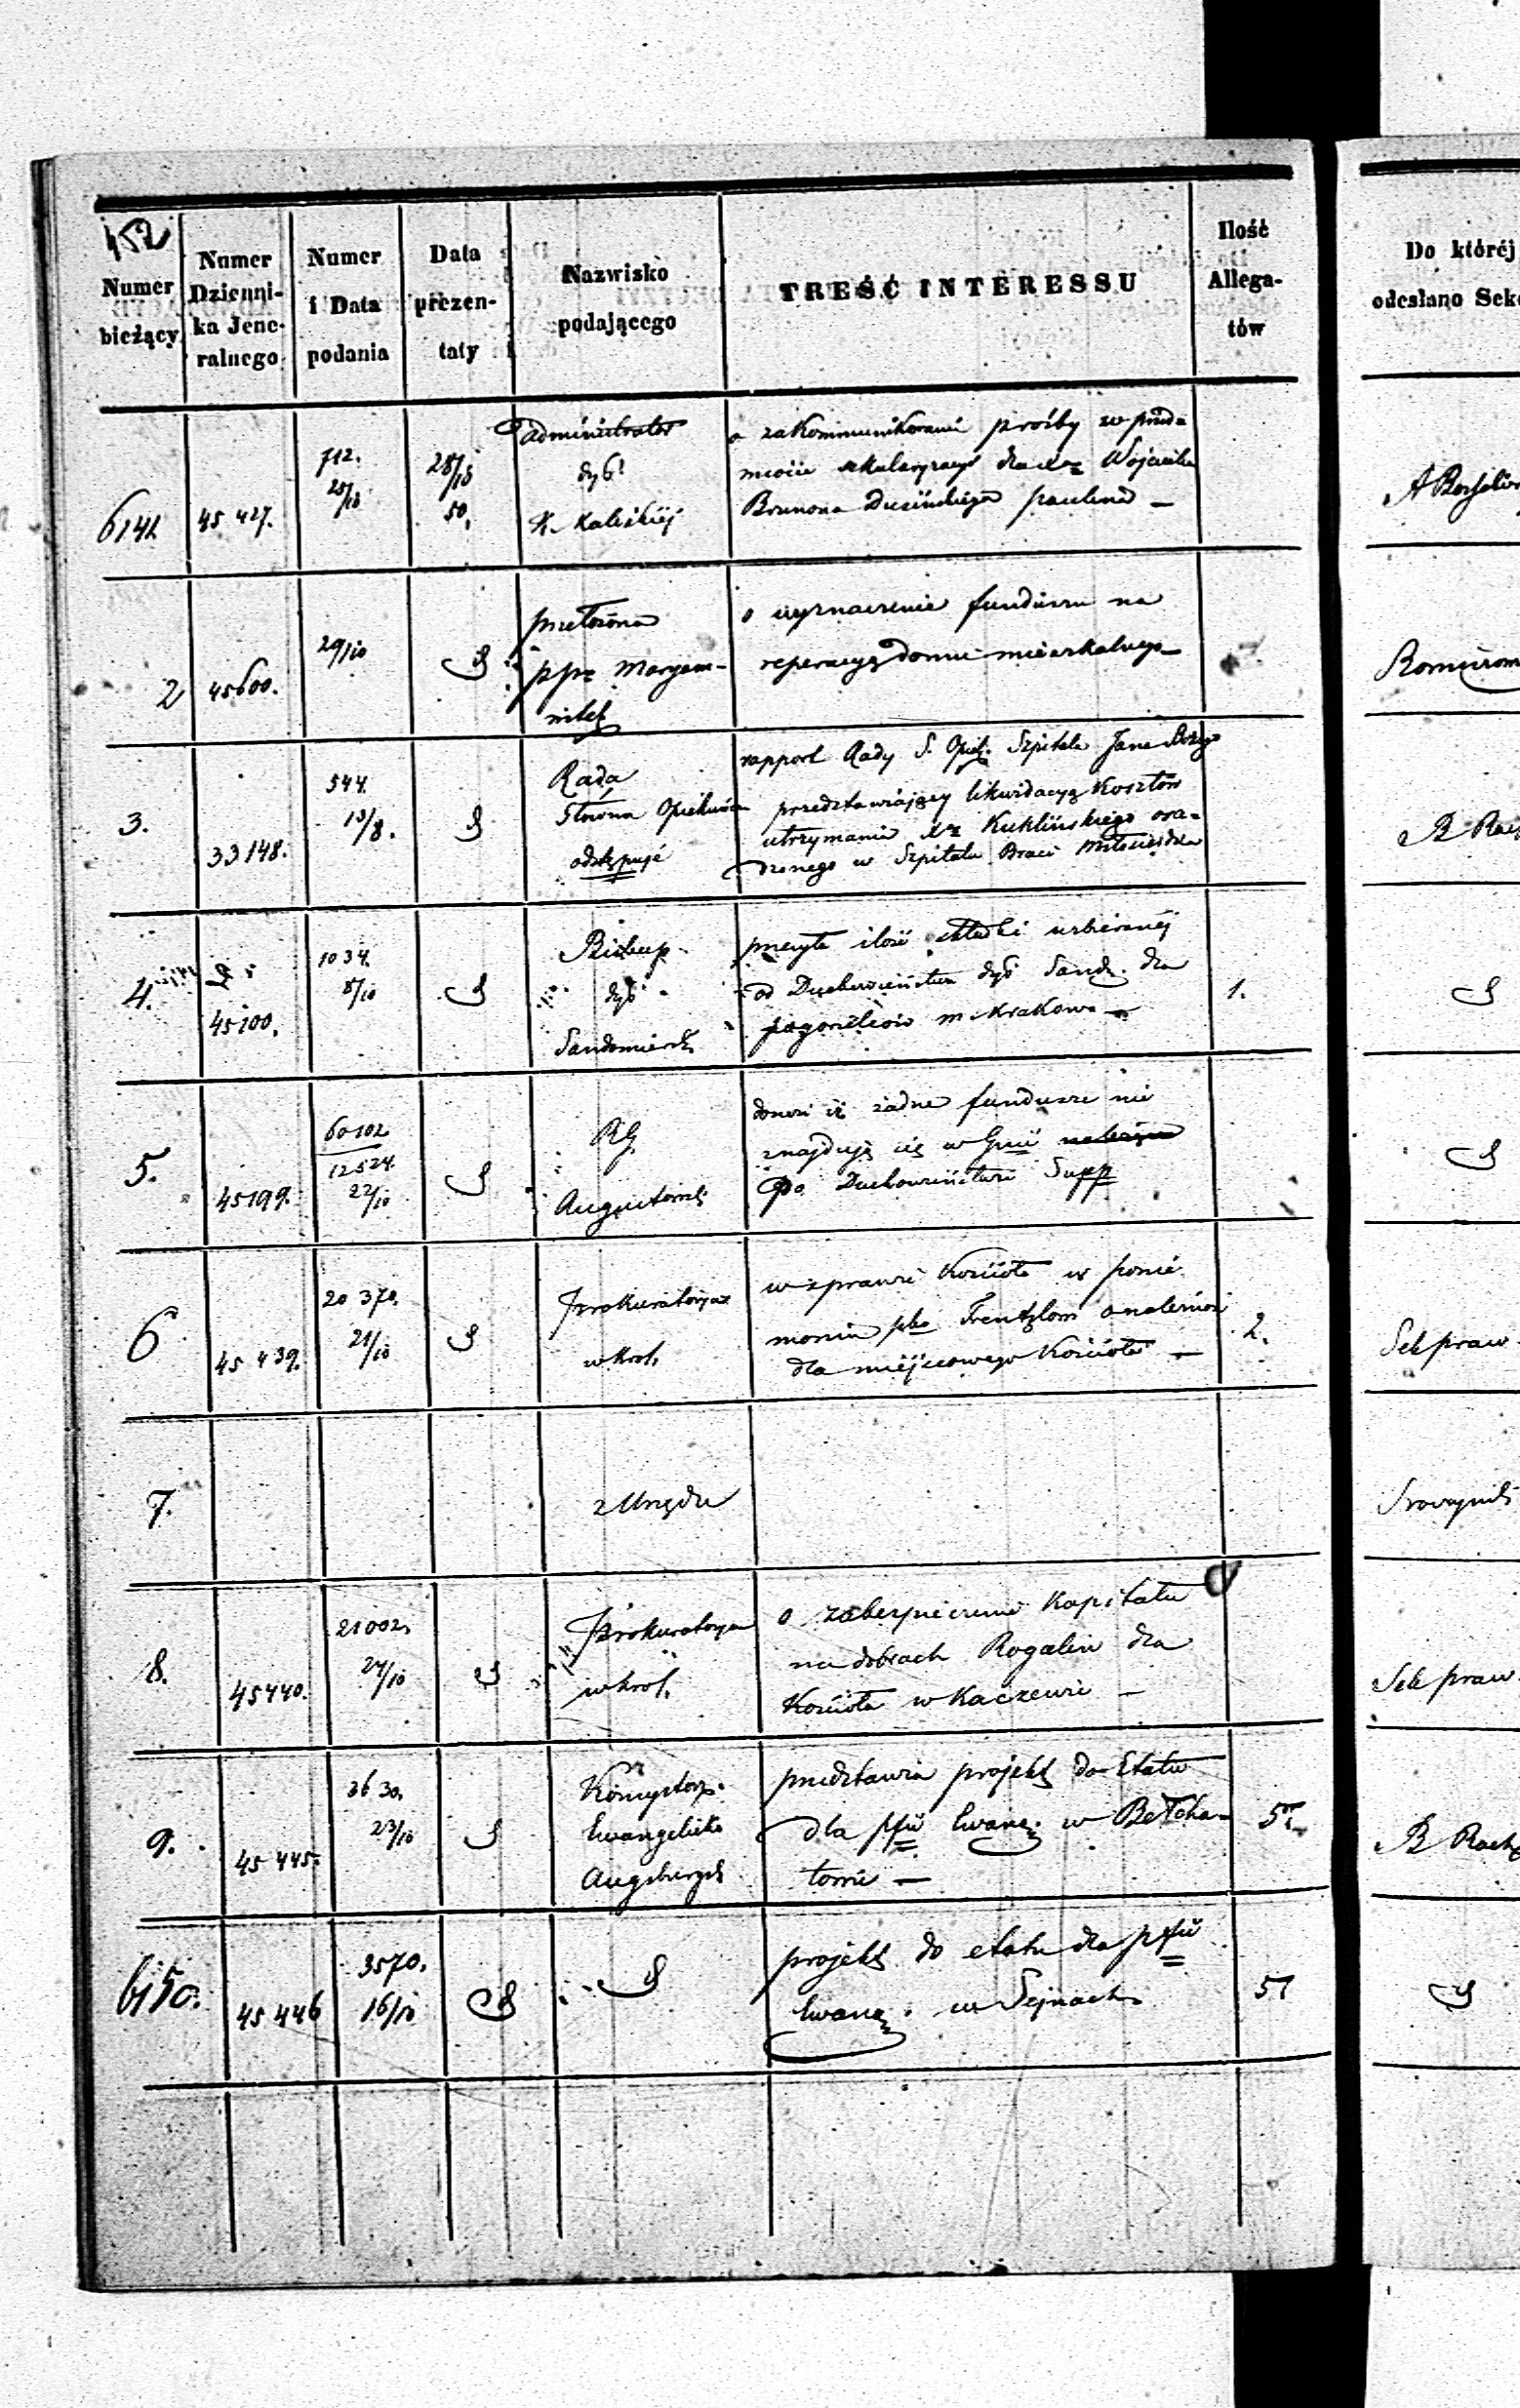 152
Numer bieżący
Numer Dzienni- ka Jene- ralnego
Numer i Data podania
Data prezen- taty
Nazwisko podającego
TREŚĆ INTERESSU
Ilość Allega- tów
Do któréj
odesłano Sek
6141.
45 427.
712.
28/10
50,
administrator
dyś
K. Kaliskiéj
o zakommunikowanie prośby w przed
miocie sekularyzacyi dla Xa Wojciecha
Brunona paulina —
2
45600.
29/10
przełożona
pp. Maryam-
nitek
o wyznaczenie funduszu na
reperacyą domu mieszkalnego
3.
33148.
544.
13/8.
Rada
Główna Opiekuńcza
odstępuje
rapport Rady S. Opiek. Szpitala Jana Bożego
przedstawiający likwidacyą kosztów
utrzymania Xa Kuklińskiego osa=
dzonego w Szpitalu Braci Miłosierdzia
4.
45100.
1034.
8/10
Biskup
dyś
Sandomiersk
przesyła ilość składki uzbieranéj
od Duchowieństwa dyś Sand. dla
pogorzelców m. Krakowa —
1.
5.
45199.
60102
12524.
22/10
RG
Augustowski
donosi iż żadne fundusze nie
znajdują się w Gnii
po Duchowieństwie Supp
6
45 439.
20 370.
21/10
Prokuratorya
w Król.
w sprawie Kościoła w
dla miéjscowego Kościoła —
2.
Sek praw
7.
z Urzędu
8.
45440.
21002.
24/10
Prokuratorya
w Król.
o zabezpieczenie Kapitału
na dobrach Rogalin dla
Kościoła w Kaczewie —
Sek praw
9.
45 445.
3630.
23/10
Konsystorz
Ewangelicko
Augsburgsk
przedstawia projekt do Etatu
dla pfii Ewang. w Bełcha-
towie —
5.
6150.
45 446
3570.
16/10
projekt do etatu dla pfii
Ewang. w Sejnach
51